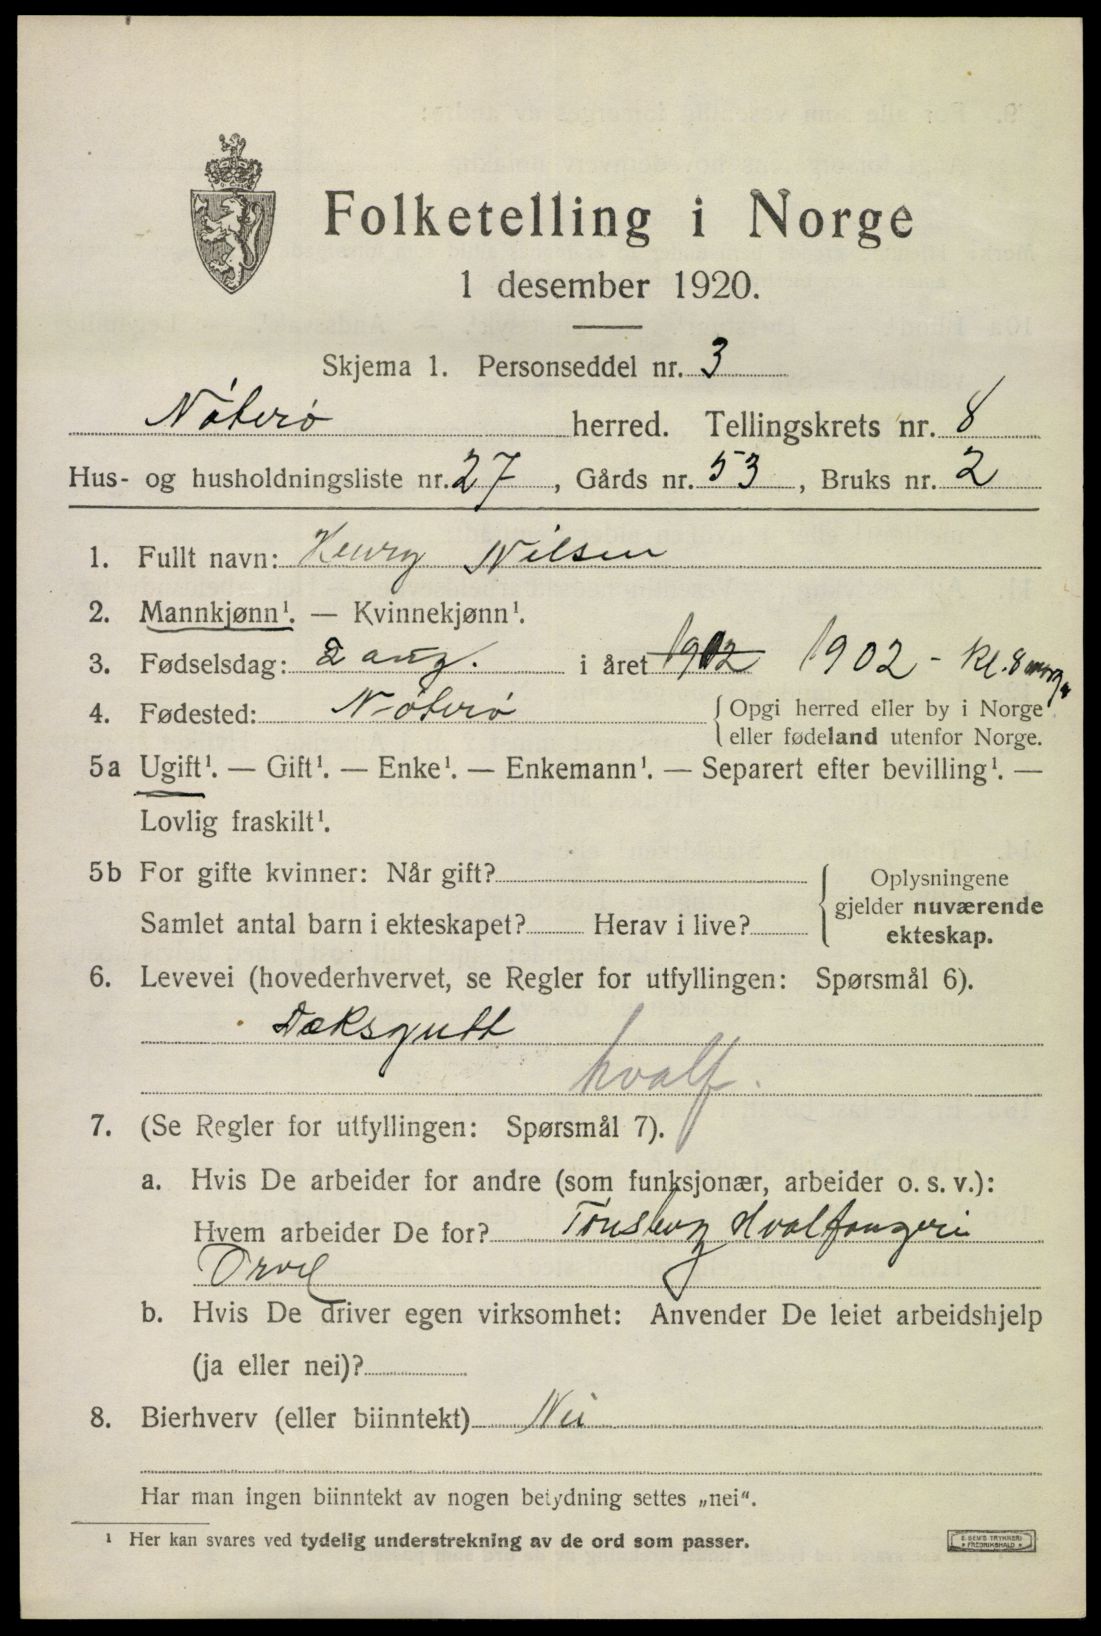 Folketelling i Norge
1 desember 1920.
Skjema 1. Personseddel nr. 3
Nøterø herred. Tellingskrets nr. 8
Hus- og husholdningsliste nr. 27, Gårds nr. 53, Bruks nr. 2
1. Fullt navn: Henry Nilsen
2. Mannkjønn¹. — Kvinnekjønn¹.
3. Fødselsdag: 2 aug. i året 1902 - Kl. 8 morg
4. Fødested: Nøterø {Opgi herred eller by i Norge
eller fødeland utenfor Norge.
5a Ugift¹. — Gift¹. — Enke¹. — Enkemann¹. — Separert efter bevilling¹. —
Lovlig fraskilt¹.
5b For gifte kvinner: Når gift?
Samlet antal barn i ekteskapet? Herav i live?
{Oplysningene
gjelder nuværende
ekteskap.
6. Levevei (hovederhvervet, se Regler for utfyllingen: Spørsmål 6).
Dæksgutt
hvalf.
7. (Se Regler for utfyllingen: Spørsmål 7).
a. Hvis De arbeider for andre (som funksjonær, arbeider o. s. v.):
Hvem arbeider De for? Tønsberg Hvalfangeri
Orvel
b. Hvis De driver egen virksomhet: Anvender De leiet arbeidshjelp
(ja eller nei)?
8. Bierhverv (eller biinntekt) Nei
Har man ingen biinntekt av nogen betydning settes „nei“.
¹ Her kan svares ved tydelig understrekning av de ord som passer.
E. SEM'S TRYKKERI
FREDRIKSHALD